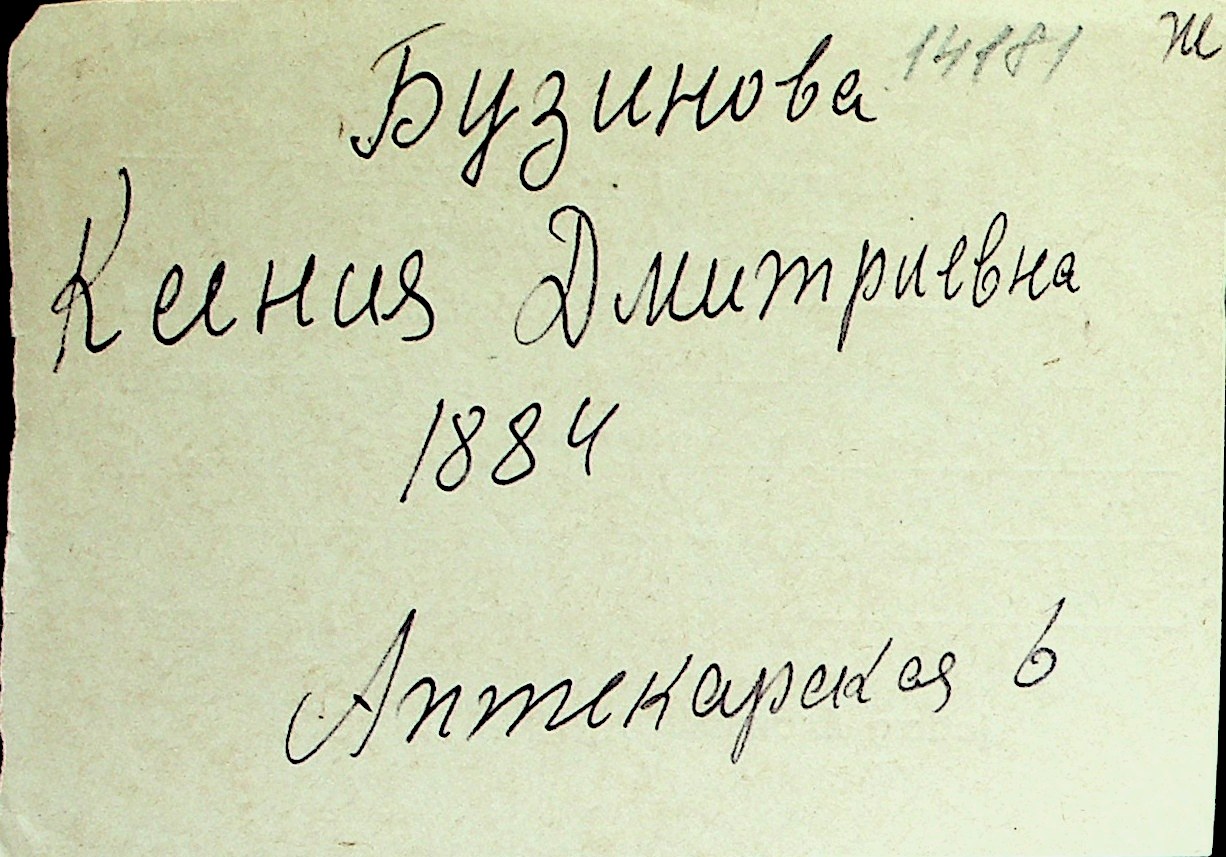 Бузинова 14181 ж
Ксения Дмитриевна
1884
Аптекарская 6